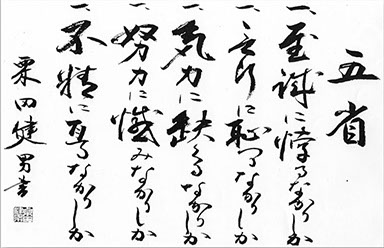 五省
一、至誠に悖るなかりしか
一、言行に恥つるなかりしか
一、気力に缺くるなかりしか
一、努力に憾みなかりしか
一、不精に亘るなかりしか
栗田健男書